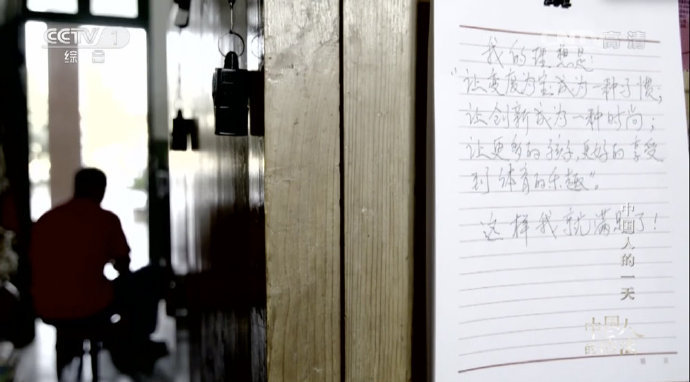 CCTV 1
综合
高清
我的理想是:
"让变废为宝成为一种习惯,
让创新成为一种时尚;
让更多的孩子,更好的享受
到体育的乐趣"。
这样我就满足了!
中国人的一天
中国人